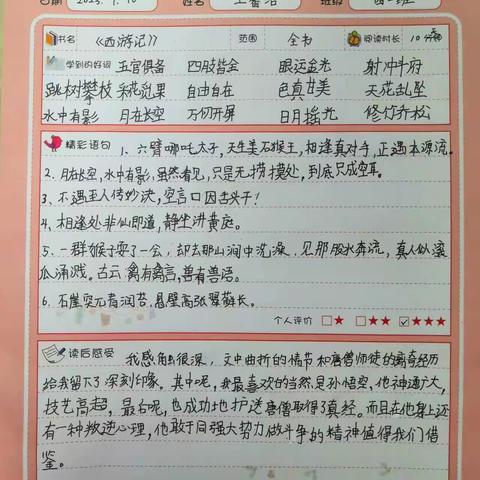 日期 2023.7.10 姓名 班级
书名 《西游记》 范围 全书 阅读时长 10分钟
学到的好词 五官俱备 四肢皆全 眼运金光 射冲斗府
跳树攀枝 采花觅果 自由自在 色真甘美 天花乱坠
水中有影 月在长空 万何开屏 日月摇光 修竹乔松
精彩语句 1、六臂哪吒太子，天生美石猴王，相逢真对手，正遇本源流。
2、月在长空，水中有影，虽然看见，只是无捞摸处，到底只成空耳。
3、不遇至人传妙诀，空言口困舌头干！
4、相逢处非仙即道，静坐讲黄庭。
5、一群猴子耍了一会，却去那山涧中洗澡，见那股水奔流，真人似滚
瓜涌溅。古云：禽有禽言，兽有兽语。
6、石崖突兀青润苔，悬壁高张翠藓长。
个人评价 ★ ★★ ★★★
读后感受 我感触很深，文中曲折的情节和唐僧师徒的离奇经历
给我留下了深刻印象。其中呢，我最喜欢的当然是孙悟空，他神通广大，
技艺高超，最后呢，也成功地护送唐僧取得了真经。而且在他身上还
有一种叛逆心理，他敢于同强大势力做斗争的精神值得我们借
鉴。